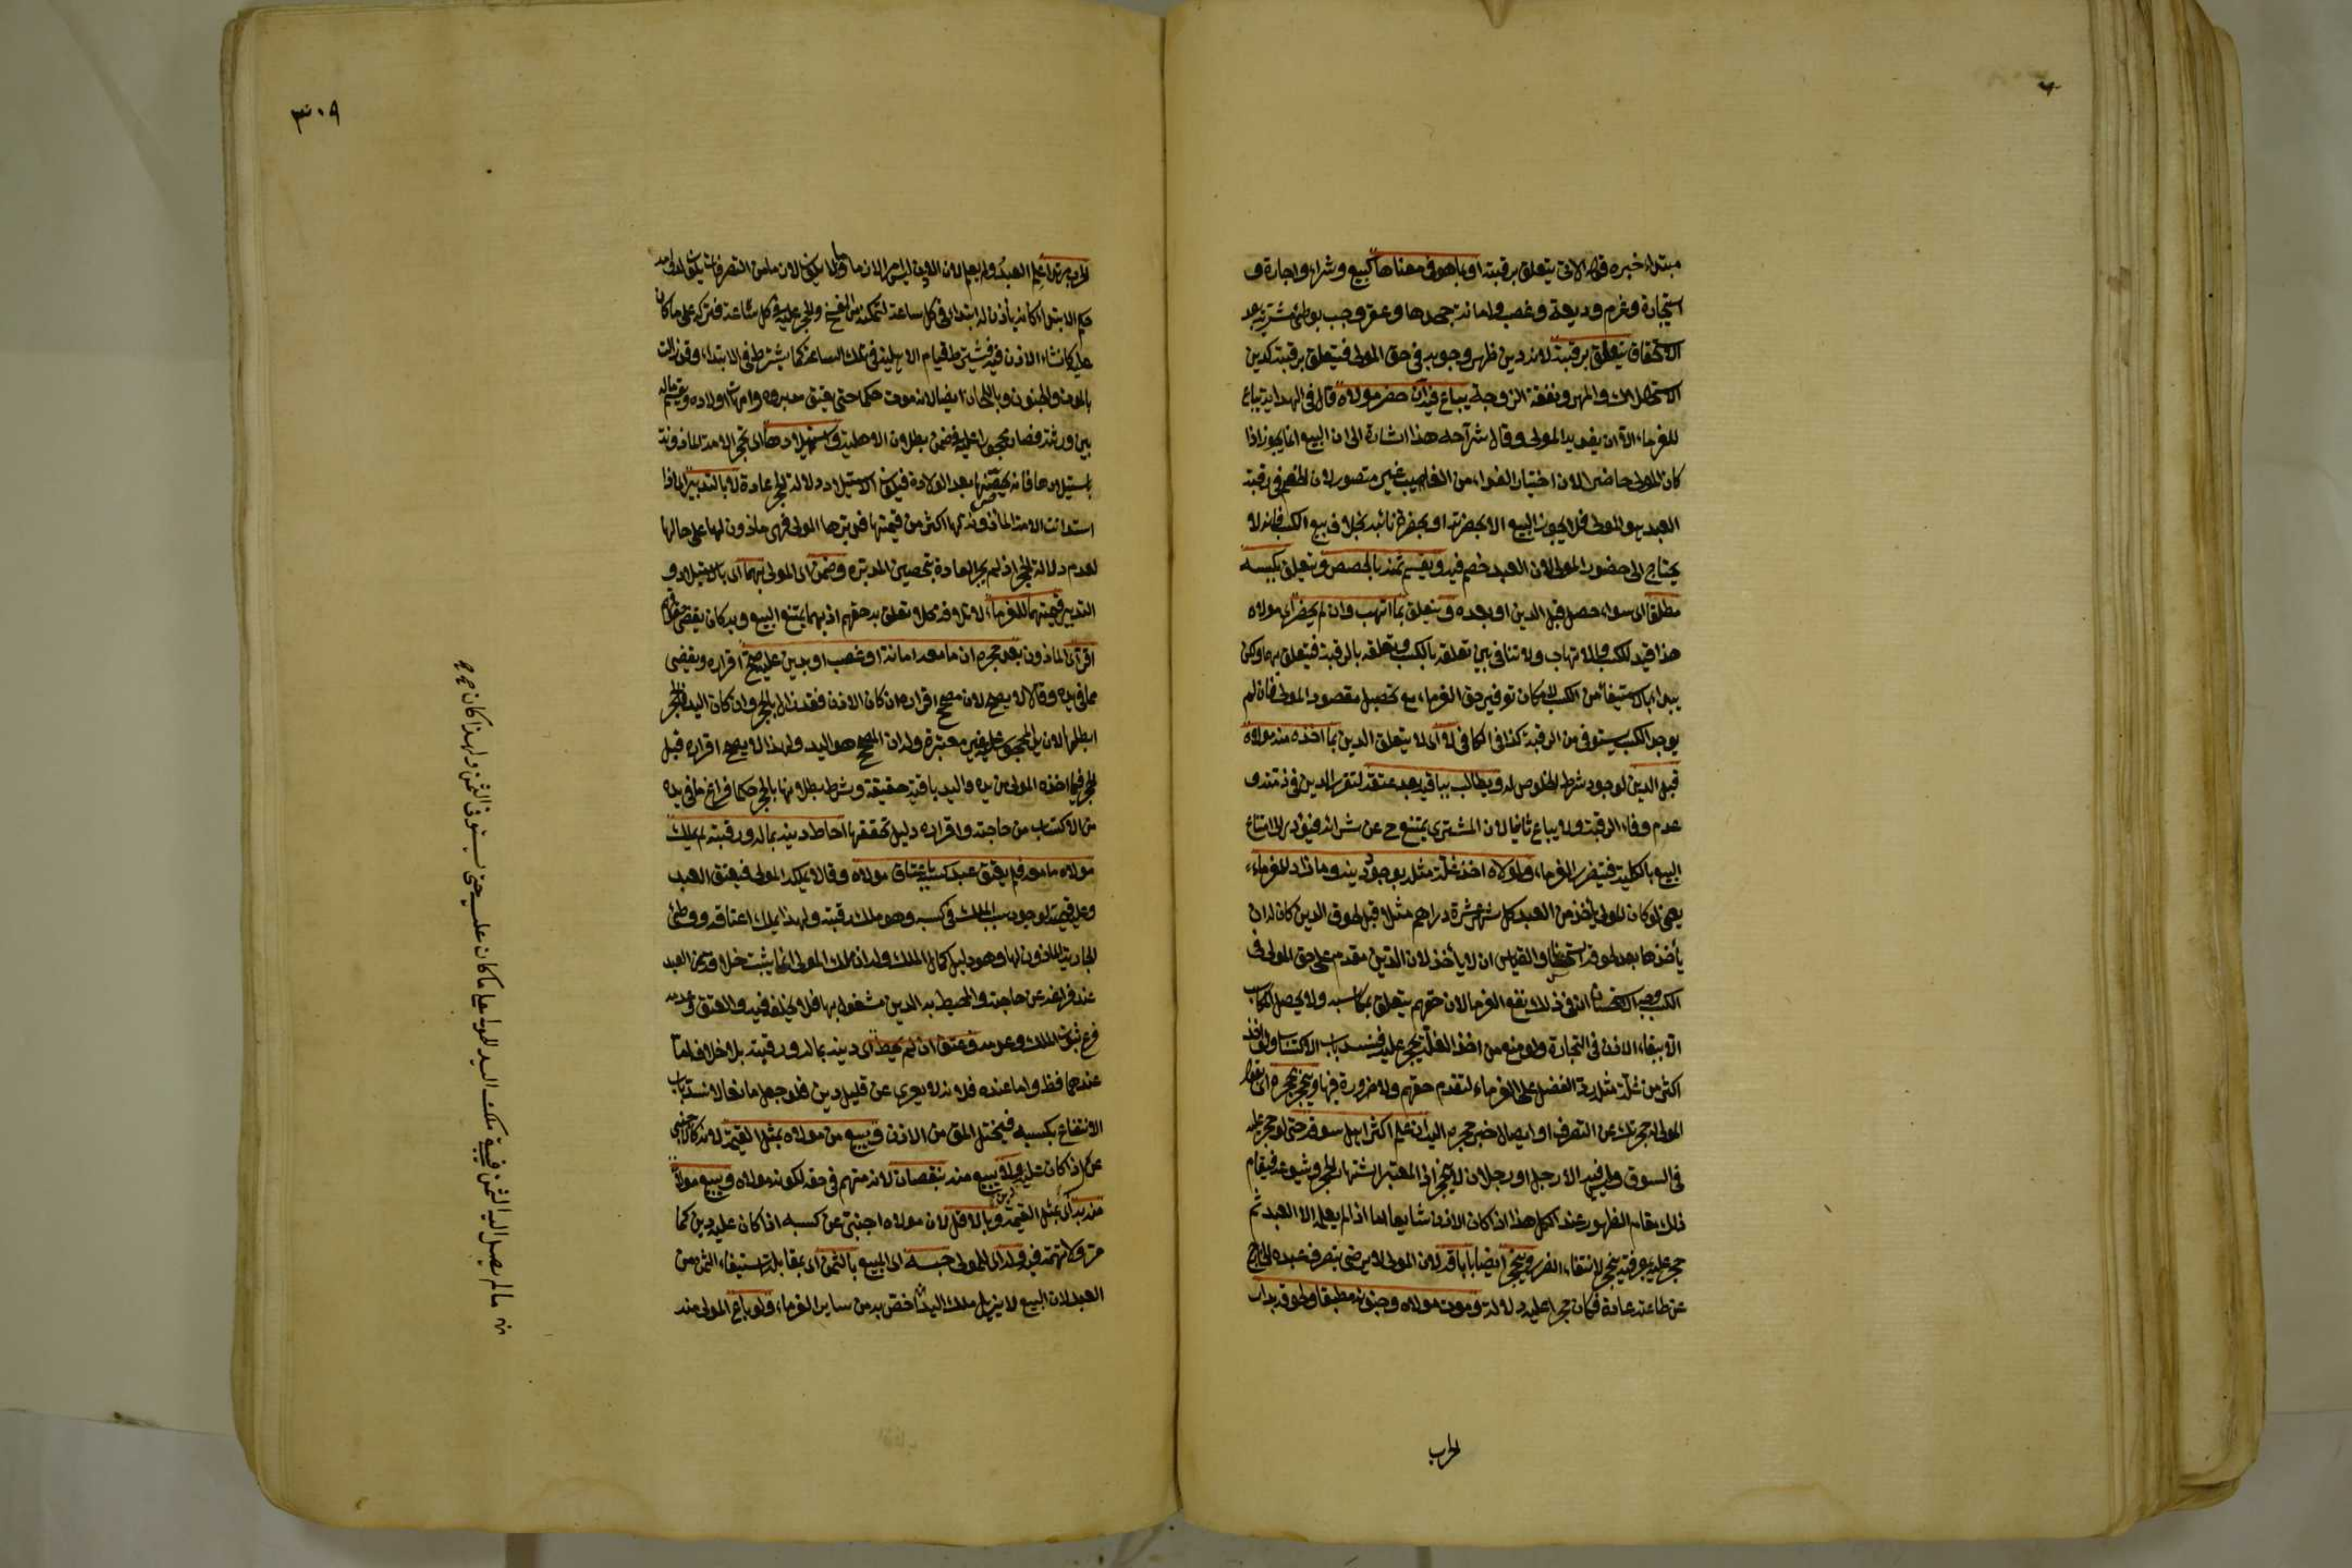 مبتداء خبره قوله الاتى يتعلق برقبته او بما هو فى معناها كبيع وشراء واجارة و
استيجارة وغرم وديعة وغصب وامانة جحدها وعقر وجب بوطئ مشترية بعد
الاستحقاق يتعلق برقبته لانه دين ظهر وجوبه فى حق المولى فيتعلق برقبته كدين
الاستهلاك والمهر ونفقة الزوجة يباع فيه ان حضر مولاه قال فى الهداية يباع
للغرماء الا ان يفديه المولى وقال شراحه هذا اشارة الى ان البيع انما يجوز اذا
كان المولى حاضرا لان اختيار الفداء من الغايب غير متصور لان الخصم فى رقبة
العبد هو المولى فلا يجوز البيع الا بحضرته او بحضرة نائبه بخلاف بيع الكسب فانه لا
يحتاج الى حضور المولى لان العبد خصم فيه ويقسم ثمنه بالحصص ويتعلق بكسبه
مطلقا اى سواء حصل قبل الدين او بعده ويتعلق بما اتهب وان لم يحضر اى مولاه
هذا قيد للكسب والاتهاب ولا تنافى بين تعلقه بالكسب وتعلقه بالرقبة فيتعلق بهما ولكن
يبدا بالاستيفاء من الكسب لامكان توفير حق الغرماء مع تحصيل مقصود المولى فان لم
يوجد الكسب يستوفى من الرقبة كذا فى الكافى لا اى لا يتعلق الدين بما اخذه منه مولاه
قبل الدين لوجود شرط الخلوص له ويطالب بباقيه بعد عتقه لتقرر الدين فى ذمته و
عدم وفاء الرقبة ولا يباع ثانيا لان المشترى يمتنع ح عن شرائه فيؤدى الى امتناع
البيع بالكلية فيتضرر الغرماء ولمولاه اخذ غلة مثله بوجود دينه وما زاد للغرماء
يعنى لو كان المولى يأخذ من العبد كل شهر عشرة دراهم مثلا قبل لحوق الدين كان له ان
يأخذها بعد لحوقه استحسانا والقياس ان لا يأخذ لان الدين مقدم على حق المولى فى
الكسب وجه الاستحسان ان فى ذلك نفع الغرماء لان حقهم يتعلق بمكاسبه ولا يحصل المكاسب
الا ببقاء الاذن فى التجارة ولو منع من اخذ الغلة يحجر عليه فينسد باب الاكتساب ولو اخذ
اكثر من غلة مثله رد الفضل على الغرماء لتقدم حقهم ولا ضرورة فيها وينحجر بحجره اى بقول
المولى حجرتك عن التصرف او ايصال خبر حجره اليه ان علم اكثر اهل سوقه حتى لو حجر عليه
فى السوق وليس فيه الا رجل او رجلان لا ينحجر اذ المعتبر اشتهار الحجر وشيوعه فيقام
ذلك مقام الظهور عند الكل هذا اذا كان الاذن شايعا اما اذا لم يعلم الا العبد ثم
حجر عليه بمعرفته ينحجر لانتفاء الضرر وينحجر ايضا باباقه لان المولى لا يرضى بتصرف عبده الخارج
عن طاعته عادة فكان حجرا عليه دلالة وبموت مولاه وجنونه مطبقا ولحوقه بدار
الحرب
٣٠٩
الحرب مرتدا علم العبد ولم يعلم لان الاذن ليس امرا لازما وما لا يكون لازما من التصرفات يكون لدوامه
حكم الابتداء كانه يأذن له ابتداء فى كل ساعة لتمكنه من الفسخ والحجر عليه فى كل ساعة فتركه على ما كان
عليه كانشاء الاذن فيه فيشترط قيام الاهلية فى تلك الساعة كما يشترط فى الابتداء وقد زالت
بالموت والجنون وباللحاق ايضا لانه موت حكما حتى يعتق مدبروه وامهات اولاده ويقسم ماله
بين ورثته فصار محجورا عليه فى ضمن بطلان الاهلية واستيلادها اى تحجر الامة المأذونة
باستيلادها فانه يحصنها بعد الولادة فيكون الاستيلاد دلالة الحجر عادة لا بالتدبير اى اذا
استدانت الامة المأذونة لها اكثر من قيمتها فدبرها المولى فهى مأذون لها على حالها
لعدم دلالة الحجر اذ لم يجر العادة بتحصين المدبرة وضمن اى المولى بهما اى بالاستيلاد و
التدبير قيمتهما للغرماء لاتلافه محلا تعلق به حقهم اذ بهما يمتنع البيع وبه كان يقضى حقوقهم
اقر اى المأذون بعد حجره ان ما معه امانة او غصب او بدين عليه صح اقراره ويقضى
مما فى يده وقالا لا يصح لان مصحح اقراره ان كان الاذن فقد زال بالحجر وان كان اليد فالحجر
ابطلها لان يد المحجور عليه غير معتبرة وله ان المصحح هو اليد ولهذا لا يصح اقراره قبل
الحجر فيما اخذه المولى من يده واليد باقية حقيقة وشرط بطلانها بالحجر حكما فراغ ما فى يده
من الاكتساب من حاجته واقراره دليل تحققها احاط دينه بماله ورقبته لم يملك
مولاه ما معه فلم يعتق عبد كسبه باعتاق مولاه وقالا يملكه المولى فيعتق العبد
وعليه قيمته لوجود سبب الملك فى كسبه وهو ملك رقبته ولهذا يملك اعتاقه ووطئ
الجارية المأذون لها وهو دليل كمال الملك وله ان ملك المولى انما يثبت خلافة عن العبد
عند فراغه عن حاجته والمحيط به الدين مشغول بها فلا يخلفه فيه والعتق وعدمه
فرع ثبوت الملك وعدمه وعتق ان لم يحط اى دينه بماله ورقبته بلا خلاف اما
عندهما فظ واما عنده فلانه لا يعرى عن قليل دين فلو جعل مانعا لانسد باب
الانتفاع بكسبه فيختل المق من الاذن ويبيع من مولاه بمثل القيمة لانه كالاجنبى
عن اذا كان عليه دين ولا يبيع منه بنقصان لانه متهم فى حقه لكونه مولاه ويبيع مولاه
منه به اى بمثل القيمة وبالاقل لان مولاه اجنبى عن كسبه اذا كان عليه دين كما
مر ولا تهمة فيه وله اى للمولى حبسه اى المبيع بالثمن اى بمقابلة استيفاء الثمن من
العبد لان البيع لا يزيل ملك اليد اخص به من ساير الغرماء ولو باع المولى منه
ما لم يصل اليه الثمن فيبقى ملك اليد للمولى على ما كان عليه حتى يستوفى الثمن ولهذا كان